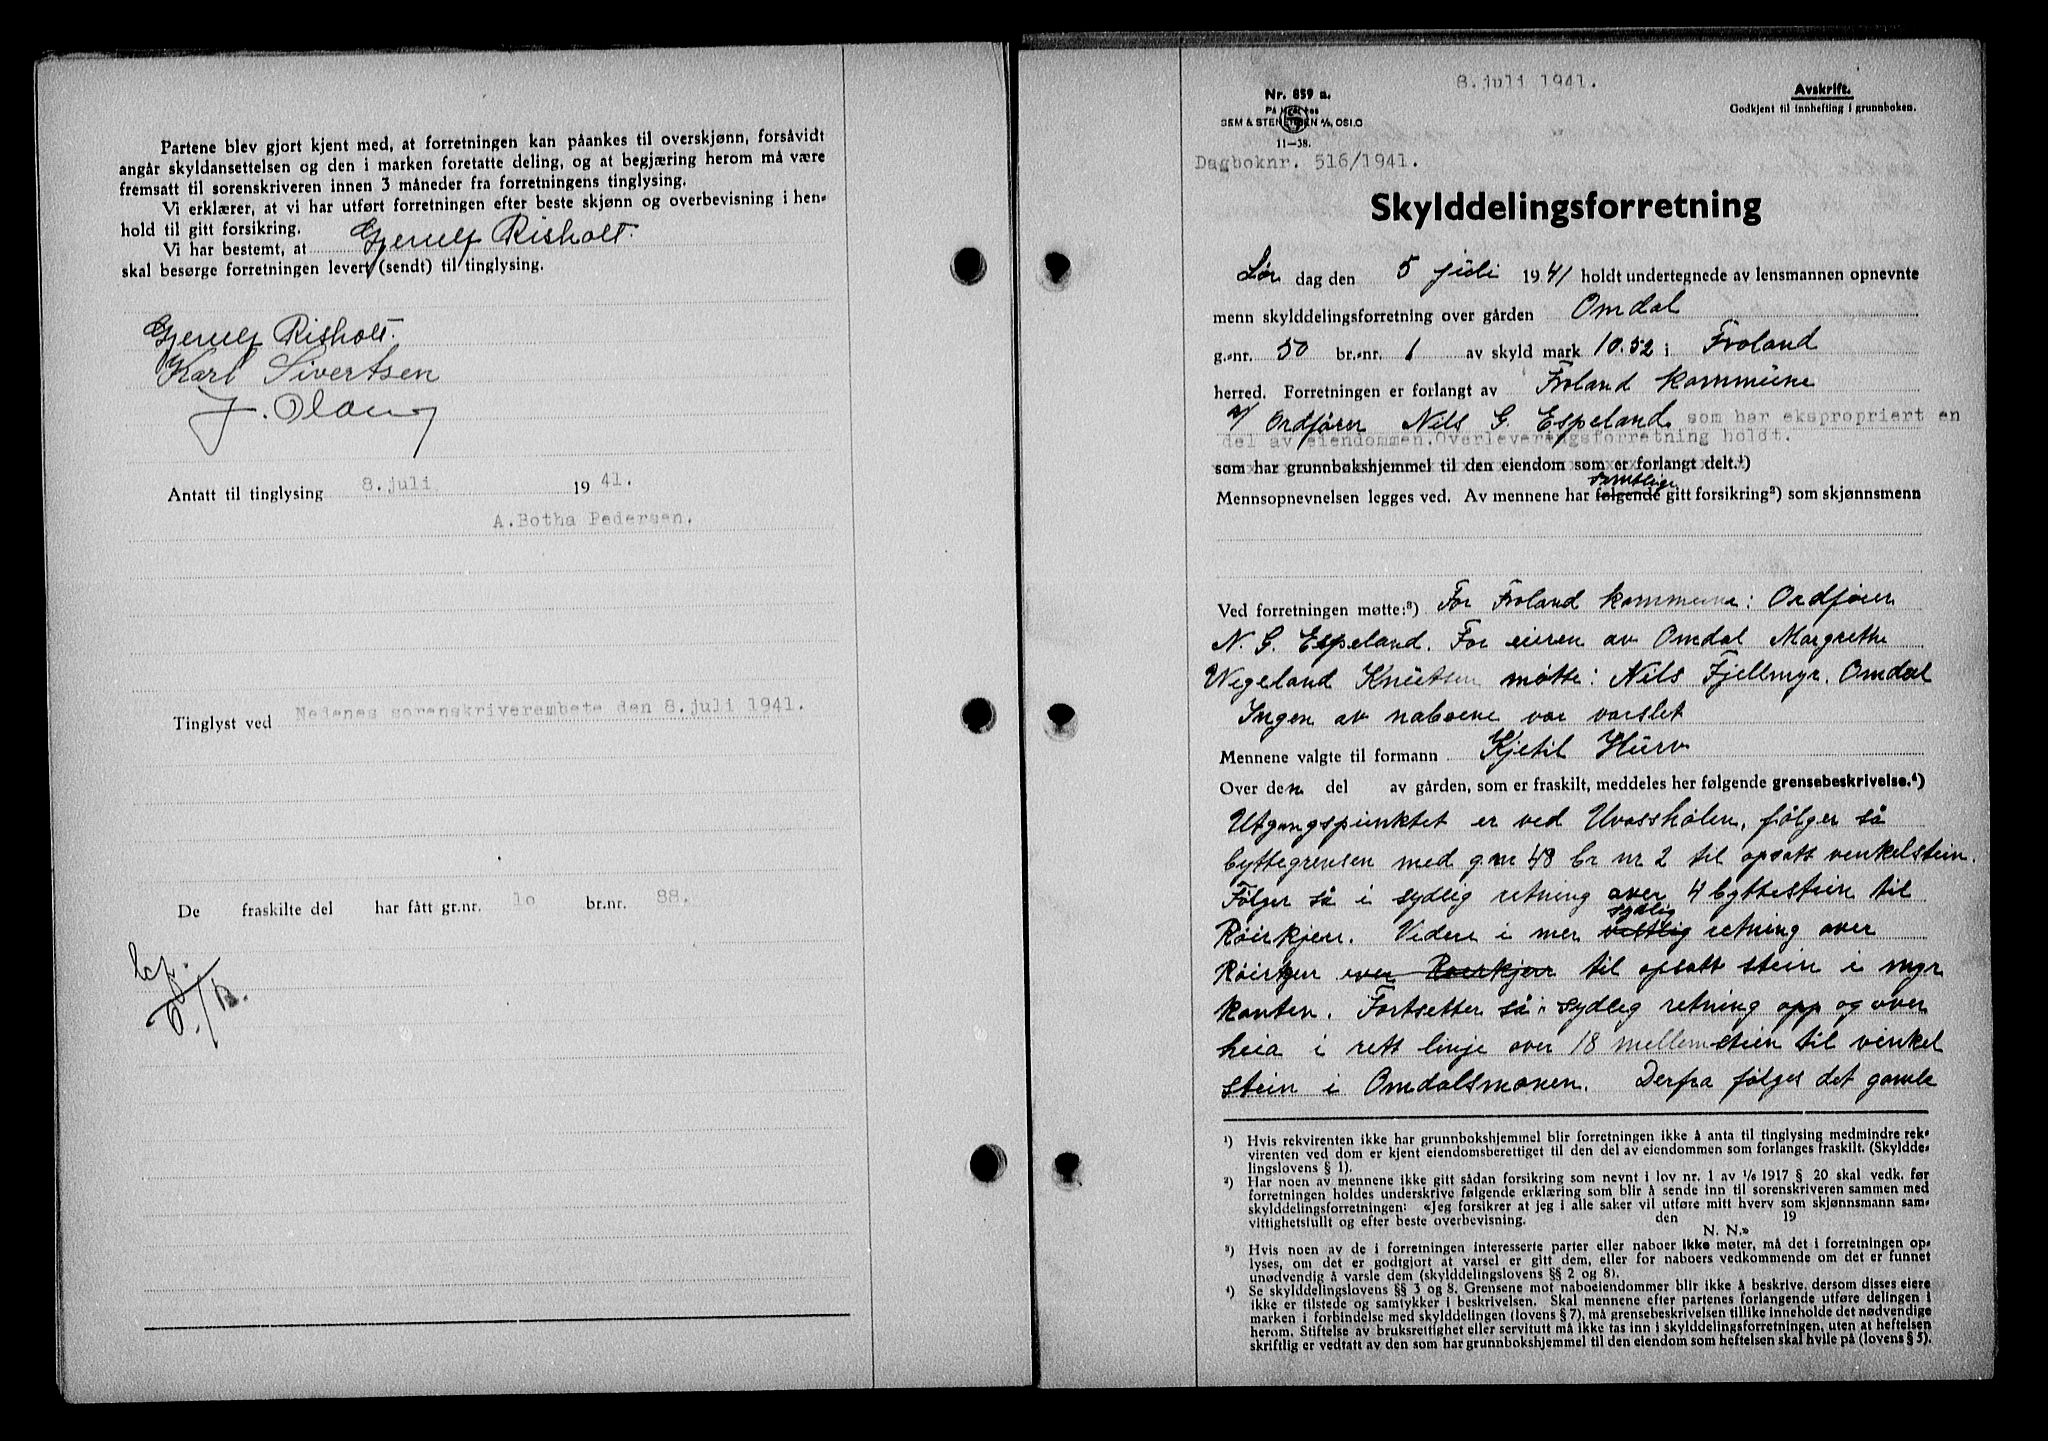 Partene blev gjort kjent med, at forretningen kan påankes til overskjønn, forsåvidt
angår skyldansettelsen og den i marken foretatte deling, og at begjæring herom må være
fremsatt til sorenskriveren innen 3 måneder fra forretningens tinglysing.
Vi erklærer, at vi har utført forretningen efter beste skjønn og overbevisning i hen-
hold til gitt forsikring.
Vi har bestemt, at Gjerulf Risholt.
skal besørge forretningen levert (sendt) til tinglysing.
Gjerulf Risholt.
Karl Sivertsen
J. Olang
Antatt til tinglysing 8. juli 1941.
A. Botha Pedersen.
Tinglyst ved Nedenes sorenskriverembete den 8. juli 1941.
De fraskilte del har fått gr.nr. 10 br.nr. 88.
8. juli 1941.
Nr. 859 a.
SEM & STENERSEN A/S, OSLO
11-38.
Avskrift.
Godkjent til innhefting i grunnboken.
Dagboknr. 516/1941.
Skylddelingsforretning
Lør dag den 5 juli 1941 holdt undertegnede av lensmannen opnevnte
menn skylddelingsforretning over gården Omdal
g.-nr. 50 br.-nr. 1 av skyld mark 10.52 i Froland
herred. Forretningen er forlangt av Froland kommune
v/ Ordfører Nils G. Espeland som har ekspropriert en
del av eiendommen. Overleveringsforretning holdt.
som har grunnbokshjemmel til den eiendom som er forlangt delt.¹)
Mennsopnevnelsen legges ved. Av mennene har følgende samtlige gitt forsikring²) som skjønnsmenn
Ved forretningen møtte:³) For Froland kommune: Ordfører
N. G. Espeland. For eieren av Omdal Margrethe
Wegeland Knutsen møtte: Nils Fjellmyr. Omdal
Ingen av naboene var varslet
Mennene valgte til formann Kjetil Hurv
Over den del av gården, som er fraskilt, meddeles her følgende grensebeskrivelse.⁴)
Utgangspunktet er ved Uvasshølen, følger så
byttegrensen med gnr 48 br nr 2 til opsatt venkelstein.
Følger så i sydlig retning over 4 byttestein til
Røirkjerr. Videre i mer vestlig sydlig retning over
Røirkjerr over Roerkjerr til opsatt stein i myr
kanten. Fortsetter så i sydleg retning opp og over
heia i rett linje over 18 mellemstein til vinkel
stein i Omdalsmonen. Derfra følges det gamle
¹) Hvis rekvirenten ikke har grunnbokshjemmel blir forretningen ikke å anta til tinglysing medmindre rek-
virenten ved dom er kjent eiendomsberettiget til den del av eiendommen som forlanges fraskilt. (Skyldde-
lingslovens § 1).
²) Har noen av mennene ikke gitt sådan forsikring som nevnt i lov nr. 1 av 1/6 1917 § 20 skal vedk. før
forretningen holdes underskrive følgende erklæring som blir å sende inn til sorenskriveren sammen med
skylddelingsforretningen: «Jeg forsikrer at jeg i alle saker vil utføre mitt hverv som skjønnsmann sam-
vittighetsfullt og efter beste overbevisning. den 19
N. N.»
³) Hvis noen av de i forretningen interesserte parter eller naboer ikke møter, må det i forretningen op-
lyses, om det er godtgjort at varsel er gitt dem, eller for naboers vedkommende om det er funnet
unødvendig å varsle dem (skylddelingslovens §§ 2 og 8).
⁴) Se skylddelingslovens §§ 3 og 8. Grensene mot naboeiendommer blir ikke å beskrive, dersom disses eiere
ikke er tilstede og samtykker i beskrivelsen. Skal mennene efter partenes forlangende utføre delingen i
marken i forbindelse med skylddelingen (lovens § 7), må grensebeskrivelsen tillike inneholde det nødvendige
herom. Stiftelse av bruksrettighet eller servitutt må ikke tas inn i skylddelingsforretningen, uten at heftelsen
skriftlig er vedtatt av den som har grunnbokshjemmel til den eiendom som heftelsen skal hvile på (lovens § 5).